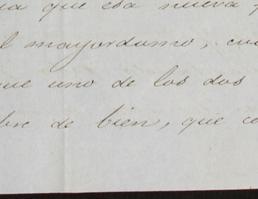 que esa nueva
mayordomo, cu
ue uno de los dos
bre de bien, que co